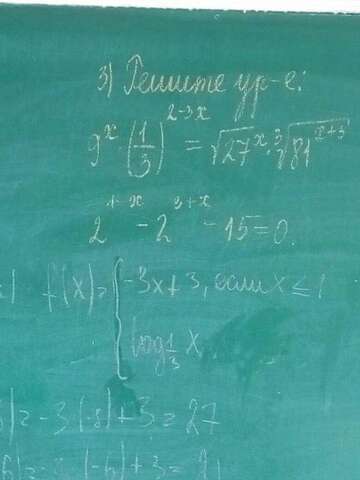 3) Решите ур-е:
9^x · (1/3)^(2-3x) = √27^x · ∛81^(x+3)
2^(1-x) - 2^(3+x) - 15 = 0.
f(x) = { -3x+3, если x ≤ 1
log_(1/3) x
) = -3(-8)+3 = 27
(-6)+3 = 21